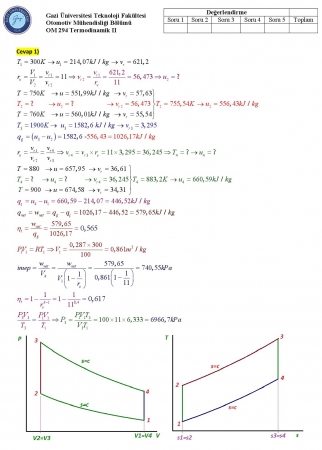 Gazi Üniversitesi Teknoloji Fakültesi
Otomotiv Mühendisliği Bölümü
OM 294 Termodinamik II
Değerlendirme
Soru 1 Soru 2 Soru 3 Soru 4 Soru 5 Toplam
Cevap 1)
T₁ = 300K → u₁ = 214,07kJ / kg → v_r1 = 621,2
r_v = V₁/V₂ = v_r1/v_r2 = 11 ⇒ v_r2 = v_r1/r_v = 621,2/11 = 56,473 ⇒ u₂ = ?
T = 750K → u = 551,99kJ / kg → v_r = 57,63
T₂ = ? → u₂ = ? → v_r2 = 56,473 T₂ = 755,54K → u₂ = 556,43kJ / kg
T = 760K → u = 560,01kJ / kg → v_r = 55,54
T₃ = 1900K → u₃ = 1582,6 kJ / kg → v_r3 = 3,295
q_g = (u₃ − u₂) = 1582,6 -556,43 = 1026,17kJ / kg
r_v = v_r4/v_r3 ⇒ v_r4 = v_r3 × r_v = 11 × 3,295 = 36,245 ⇒ T₄ = ? → u₄ = ?
T = 880 → u = 657,95 → v_r = 36,61
T₄ = ? → u₄ = ? → v_r4 = 36,245 T₄ = 883,2K → u₄ = 660,59kJ / kg
T = 900 → u = 674,58 → v_r = 34,31
q_ç = u₄ − u₁ = 660,59 − 214,07 = 446,52kJ / kg
w_net = q_g − q_ç = 1026,17 − 446,52 = 579,65kJ / kg
η_t = w_net/q_g = 579,65/1026,17 = 0,565
P₁V₁ = RT₁ ⇒ V₁ = 0,287 × 300/100 = 0,861m³ / kg
imep = w_net/V_h = w_net/V₁(1 − 1/r_v) = 579,65/0,861(1 − 1/11) = 740,55kPa
η_t = 1 − 1/r_v^(k−1) = 1 − 1/11^0,4 = 0,617
P₃V₃/T₃ = P₁V₁/T₁ ⇒ P₃ = P₁V₁T₃/V₃T₁ = 100 × 11 × 6,333 = 6966,7kPa
P
3
s=c
2
s=c
4
1
V2=V3
V1=V4
V
T
3
s=c
2
4
s=c
1
s1=s2
s3=s4
s